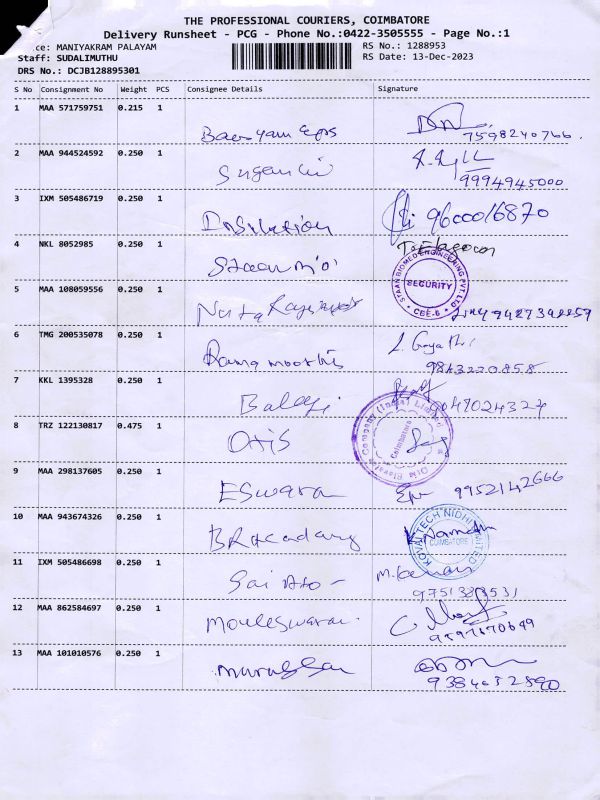 THE PROFESSIONAL COURIERS, COIMBATORE
Delivery Runsheet - PCG - Phone No.:0422-3505555 - Page No.:1
ce: MANIYAKRAM PALAYAM RS No.: 1288953
Staff: SUDALIMUTHU RS Date: 13-Dec-2023
DRS No.: DCJB128895301
S No Consignment No Weight PCS Consignee Details Signature
1 MAA 571759751 0.215 1
7598240766.
2 MAA 944524592 0.250 1
9994945000
3 IXM 505486719 0.250 1
9600016870
4 NKL 8052985 0.250 1
STAAN BIOMED ENGINEERING PVT LTD
SECURITY
CBE-6
5 MAA 108059556 0.250 1
6 TMG 200535078 0.250 1
Ramamoorthi
9843220858
7 KKL 1395328 0.250 1
Balaji
9047024327
8 TRZ 122130817 0.475 1
Otis
Otis Elevator Company (India) Limited
Coimbatore
9 MAA 298137605 0.250 1
ESwaran
9952142666
10 MAA 943674326 0.250 1
KOVAI TECH NIDHI LIMITED
COIMBATORE
11 IXM 505486698 0.250 1
Sai
12 MAA 862584697 0.250 1
Mouleswaran.
9597170649
13 MAA 101010576 0.250 1
Murugesan
9384032890